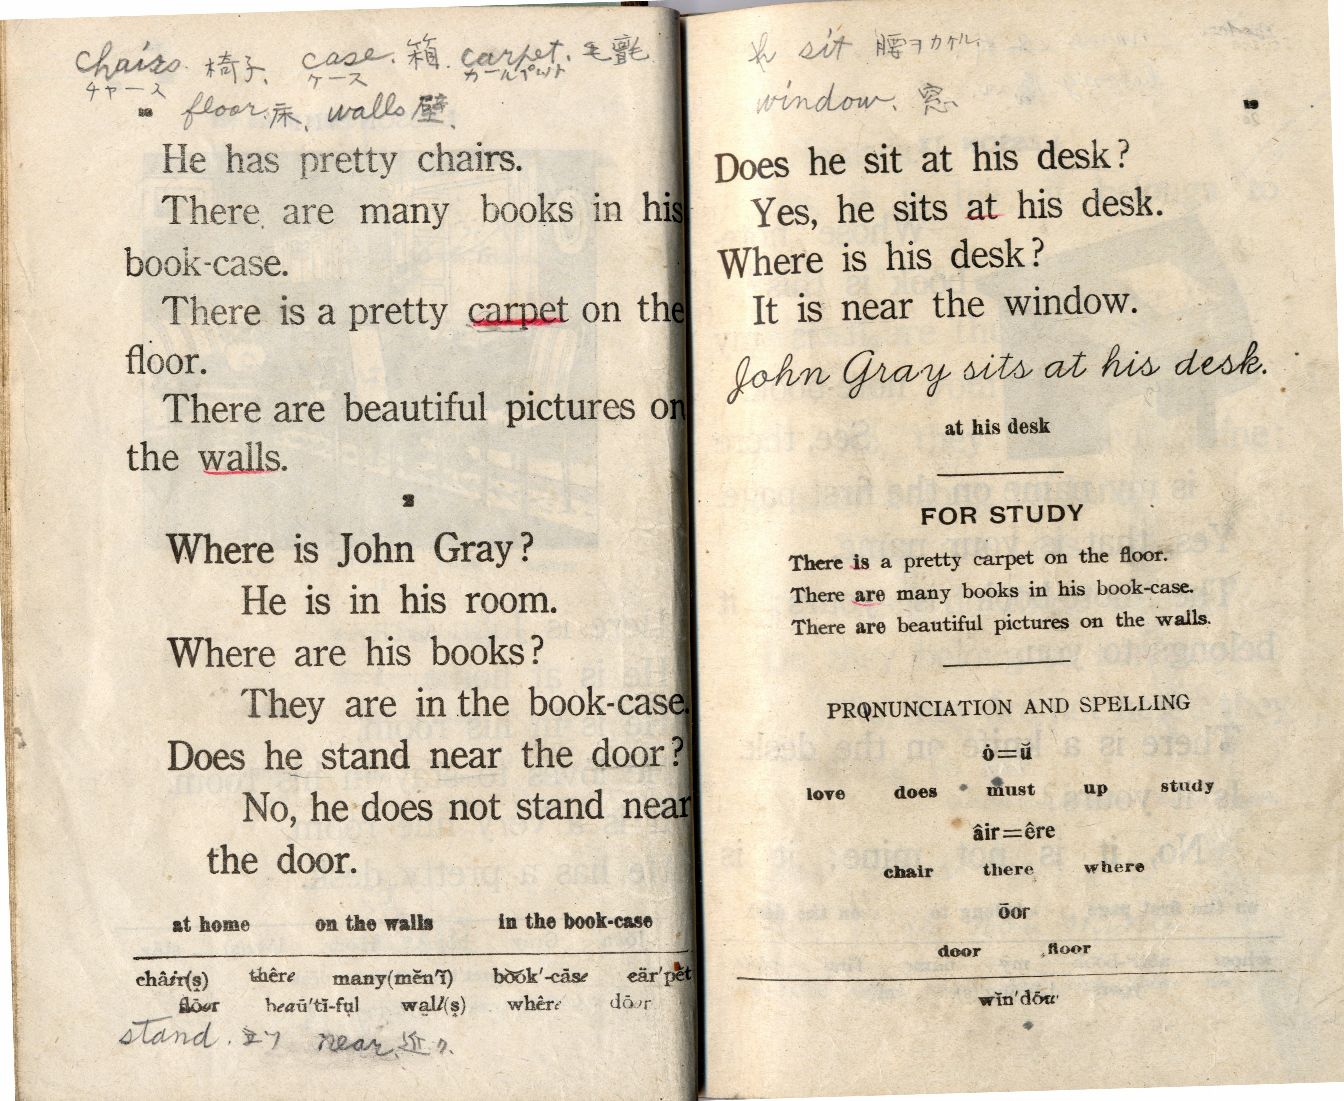 chairs 椅子. case. 箱. carpet. 毛氈
チャース ケース カールペット
floor. 床. walls 壁.
He has pretty chairs.
There are many books in his
book-case.
There is a pretty carpet on the
floor.
There are beautiful pictures on
the walls.
2
Where is John Gray?
He is in his room.
Where are his books?
They are in the book-case.
Does he stand near the door?
No, he does not stand near
the door.
at home on the walls in the book-case
châir(s̱) thêre many(mĕn'ĭ) bo͝ok'-cāse cär'pĕt
flōor beaū'tĭ-fụl wall(s̱) whêre dōor
stand. 立ツ near. 近ク.
sit 腰ヲカケル.
window. 窓.
Does he sit at his desk?
Yes, he sits at his desk.
Where is his desk?
It is near the window.
John Gray sits at his desk.
at his desk
FOR STUDY
There is a pretty carpet on the floor.
There are many books in his book-case.
There are beautiful pictures on the walls.
PRONUNCIATION AND SPELLING
ȯ=ŭ
love does must up study
âir=êre
chair there where
ōor
door floor
wĭn'dōw